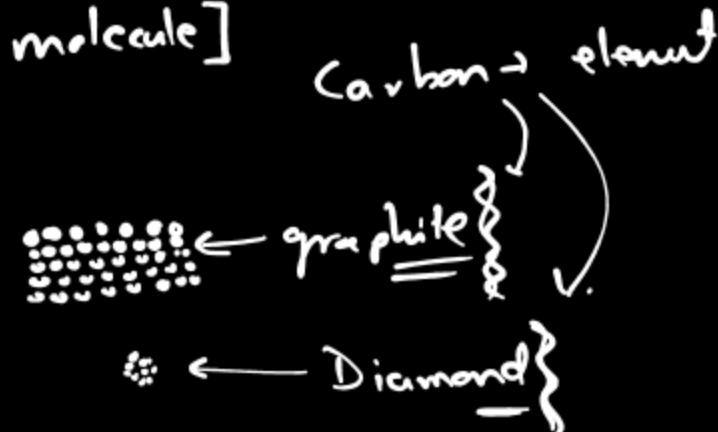 molecule]
Carbon → element
graphite
Diamond